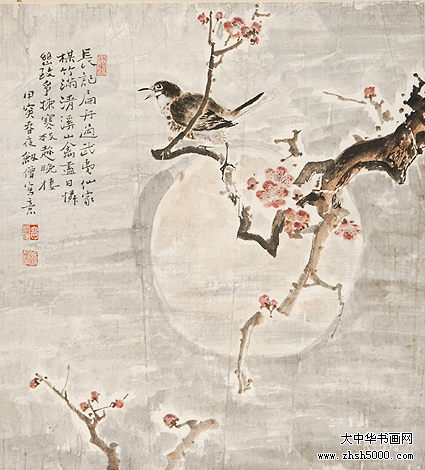 長記扁舟過武夷仙家
楳竹滿清溪山禽盡日憐
幽致爭揀寒枝趁晚棲
甲寅春夜劍僧寫意
大中华书画网
www.zhsh5000.com